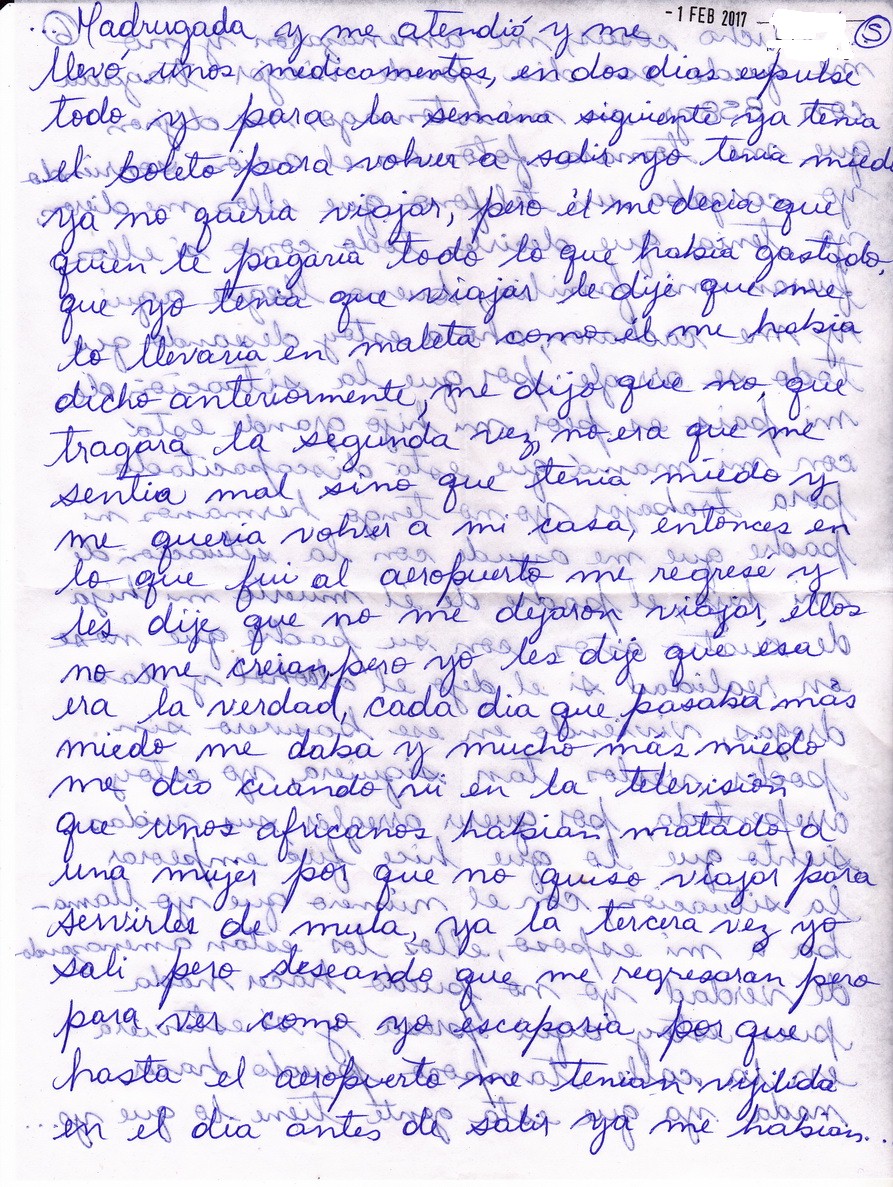 ... Madrugada y me atendió y me - 1 FEB 2017 - 5
llevó unos medicamentos, en dos dias expulse
todo y para la semana siguiente ya tenia
el boleto para volver a salir yo tenia miedo
ya no queria viajar, pero él me decia que
quien le pagaria todo lo que habia gastado,
que yo tenia que viajar le dije que me
lo llevaria en maleta como él me habia
dicho anteriormente, me dijo que no, que
tragara la segunda vez, no era que me
sentia mal sino que tenia miedo y
me queria volver a mi casa, entonces en
lo que fui al aeropuerto me regrese y
les dije que no me dejaron viajar, ellos
no me creian, pero yo les dije que esa
era la verdad, cada dia que pasaba más
miedo me daba y mucho más miedo
me dio cuando vi en la televisión
que unos africanos habian matado a
una mujer por que no quiso viajar para
servirles de mula, ya la tercera vez yo
sali pero deseando que me regresaran pero
para ver como yo escaparia por que
hasta el aeropuerto me tenian vijilida
en el dia antes de salir ya me habian...